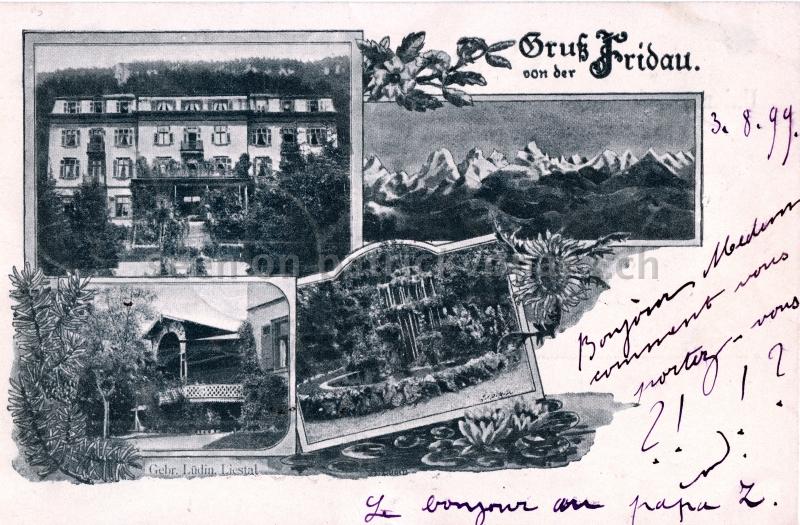 Gruß
von der Fridau.
3. 8. 99.
Bonjour
comment vous
portez-vous
?! !?
Le bonjour au papa Z.
Gebr. Lüdin, Liestal